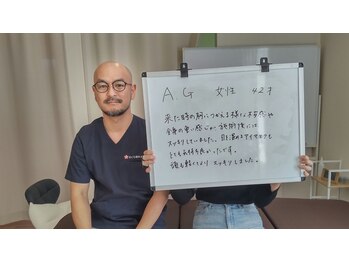 A.G 女性 42才
来た時の胸につかえる様な不安感や
全身の重い感じが施術後には
スッキリしていました。目を温めるアイマスクも
とても気持ち良かったです。
頭も軽くなり スッキリしました。